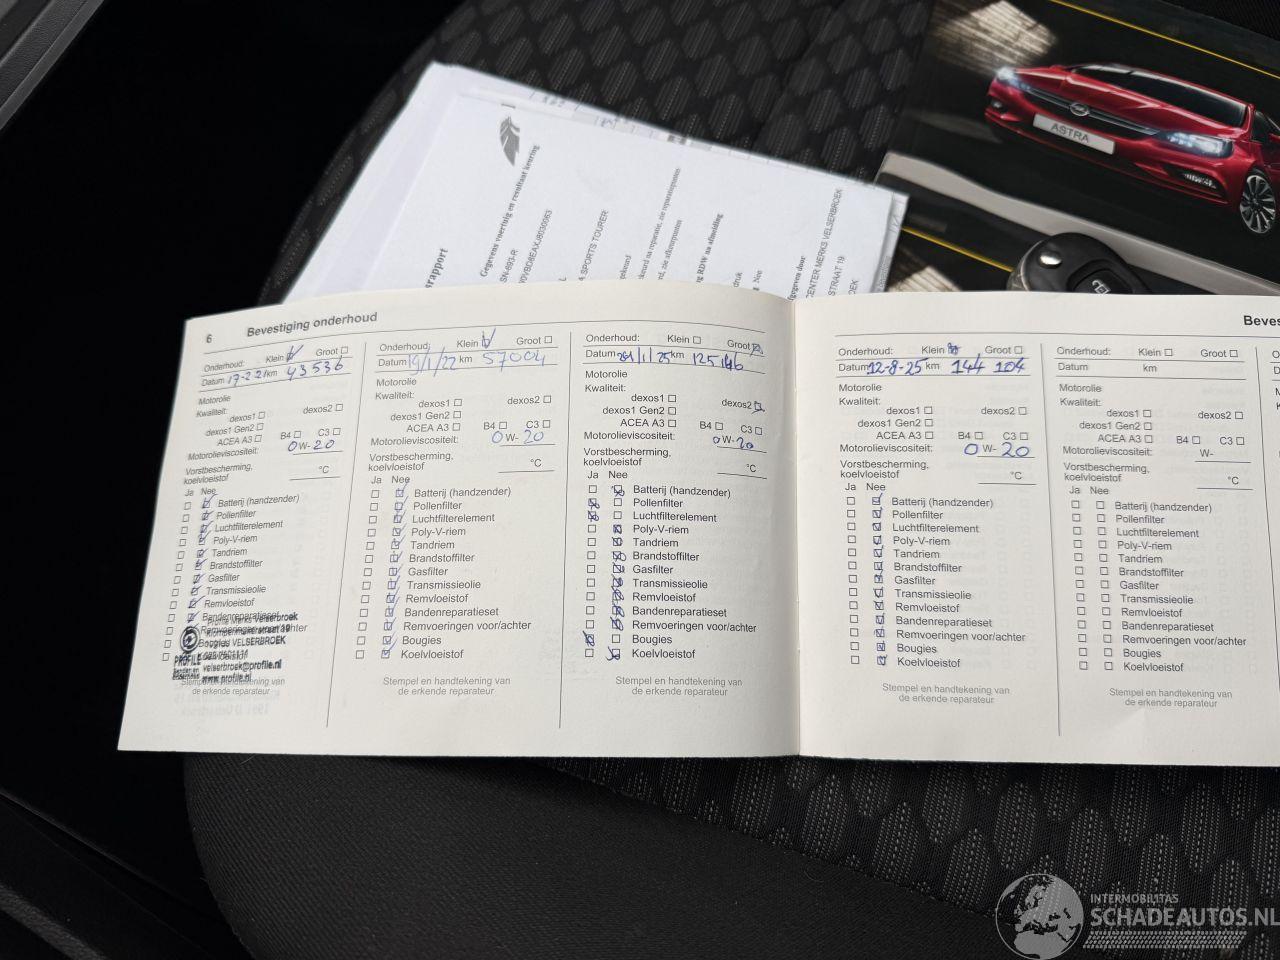 ASTRA
Gegevens voertuig en resultaat keuring
SPORTS TOURER
MERKS VELSERBROEK
STRAAT 19
6 Bevestiging onderhoud
Onderhoud: Klein Groot
Datum 17-2-21 km 43536
Motorolie
Kwaliteit:
dexos1 dexos2
dexos1 Gen2
ACEA A3 B4 C3
Motorolieviscositeit: 0 W- 20
Vorstbescherming,
koelvloeistof °C
Ja Nee
Batterij (handzender)
Pollenfilter
Luchtfilterelement
Poly-V-riem
Tandriem
Brandstoffilter
Gasfilter
Transmissieolie
Remvloeistof
Bandenreparatieset
Remvoeringen voor/achter
Bougies
Koelvloeistof
Profile Merks Velserbroek
VELSERBROEK
PROFILE
velserbroek@profile.nl
www.profile.nl
Stempel en handtekening van
de erkende reparateur
Onderhoud: Klein Groot
Datum 19/1/22 km 57004
Motorolie
Kwaliteit:
dexos1 dexos2
dexos1 Gen2
ACEA A3 B4 C3
Motorolieviscositeit: 0 W- 20
Vorstbescherming,
koelvloeistof °C
Ja Nee
Batterij (handzender)
Pollenfilter
Luchtfilterelement
Poly-V-riem
Tandriem
Brandstoffilter
Gasfilter
Transmissieolie
Remvloeistof
Bandenreparatieset
Remvoeringen voor/achter
Bougies
Koelvloeistof
Stempel en handtekening van
de erkende reparateur
Onderhoud: Klein Groot
Datum /1/25 km 125146
Motorolie
Kwaliteit:
dexos1 dexos2
dexos1 Gen2
ACEA A3 B4 C3
Motorolieviscositeit: 0 W- 20
Vorstbescherming,
koelvloeistof °C
Ja Nee
Batterij (handzender)
Pollenfilter
Luchtfilterelement
Poly-V-riem
Tandriem
Brandstoffilter
Gasfilter
Transmissieolie
Remvloeistof
Bandenreparatieset
Remvoeringen voor/achter
Bougies
Koelvloeistof
Stempel en handtekening van
de erkende reparateur
Beves
Onderhoud: Klein Groot
Datum 12-8-25 km 144 104
Motorolie
Kwaliteit:
dexos1 dexos2
dexos1 Gen2
ACEA A3 B4 C3
Motorolieviscositeit: 0 W- 20
Vorstbescherming,
koelvloeistof °C
Ja Nee
Batterij (handzender)
Pollenfilter
Luchtfilterelement
Poly-V-riem
Tandriem
Brandstoffilter
Gasfilter
Transmissieolie
Remvloeistof
Bandenreparatieset
Remvoeringen voor/achter
Bougies
Koelvloeistof
Stempel en handtekening van
de erkende reparateur
Onderhoud: Klein Groot
Datum km
Motorolie
Kwaliteit:
dexos1 dexos2
dexos1 Gen2
ACEA A3 B4 C3
Motorolieviscositeit: W-
Vorstbescherming,
koelvloeistof °C
Ja Nee
Batterij (handzender)
Pollenfilter
Luchtfilterelement
Poly-V-riem
Tandriem
Brandstoffilter
Gasfilter
Transmissieolie
Remvloeistof
Bandenreparatieset
Remvoeringen voor/achter
Bougies
Koelvloeistof
Stempel en handtekening van
de erkende reparateur
INTERMOBILITAS
SCHADEAUTOS.NL